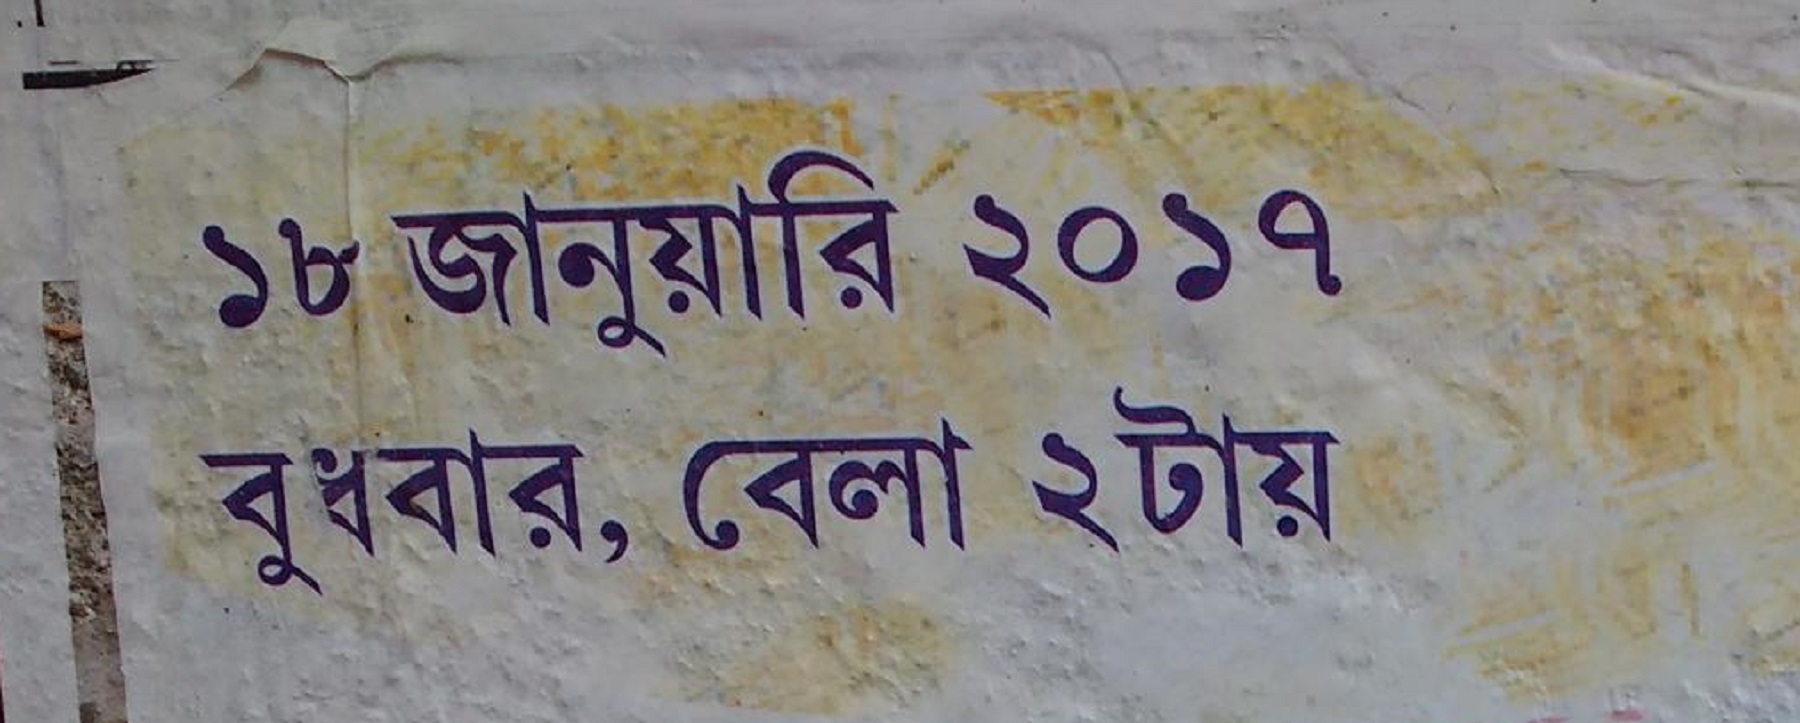 ১৮ জানুয়ারি ২০১৭
বুধবার, বেলা ২টায়